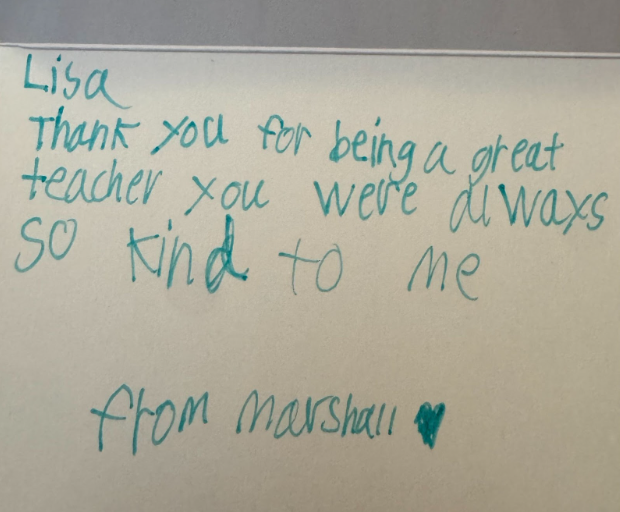 Lisa
Thank you for being a great
teacher you were always
so kind to me
from marshall ♥